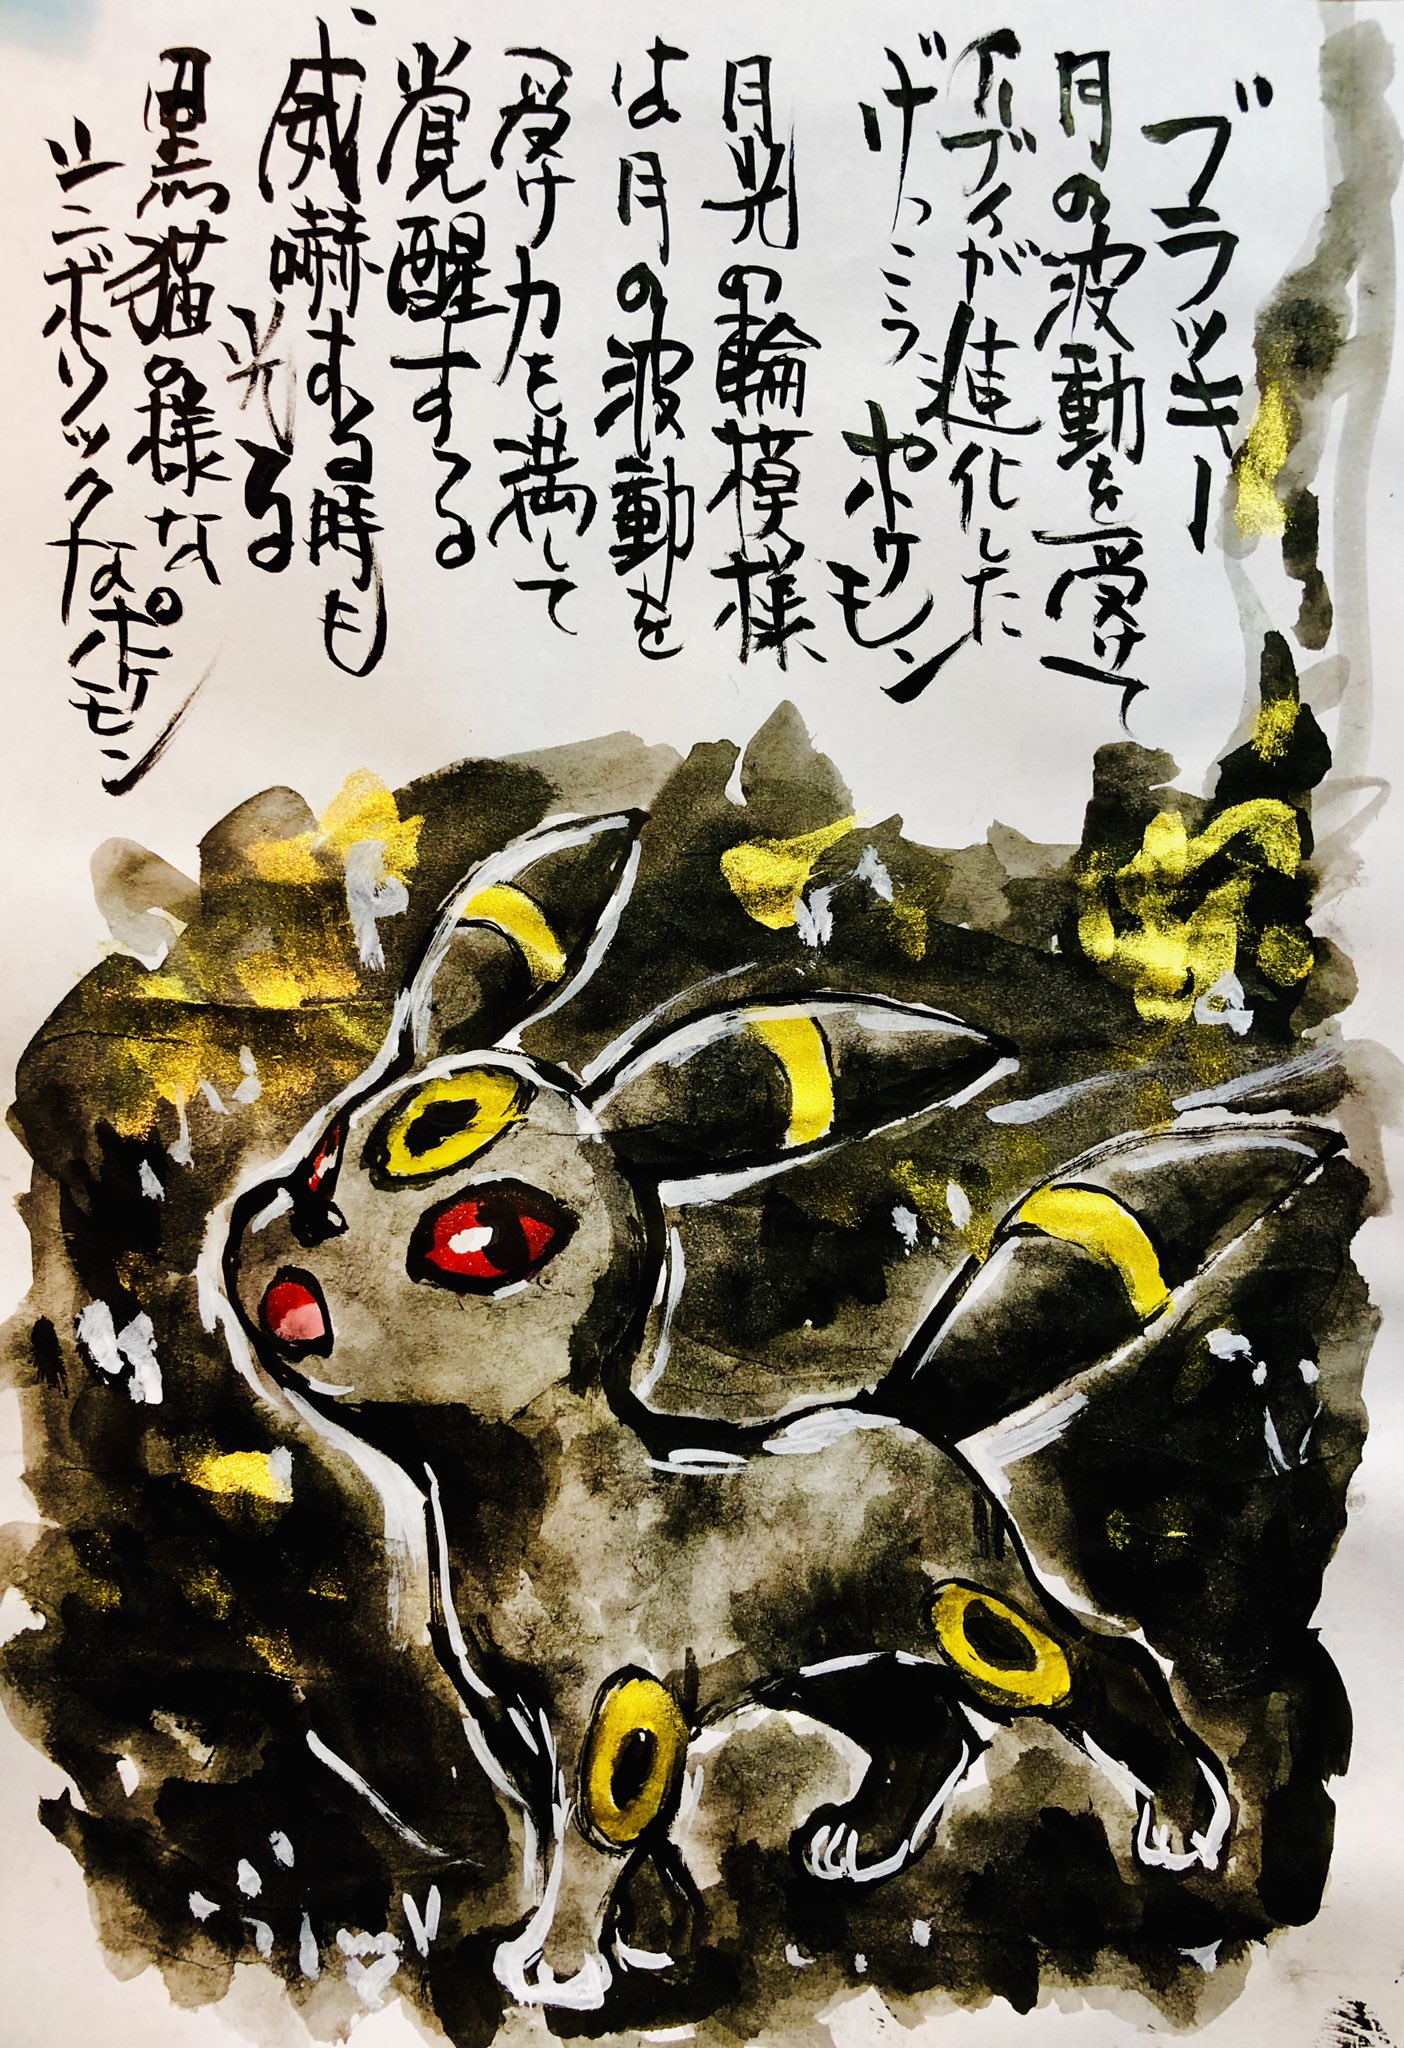 ブラッキー
月の波動を受けて
イーブイが進化した
げっこうポケモン
月光の輪模様
は月の波動を
受け力を満して
覚醒する
威嚇する時も
光る
黒猫の様な
シンボリックなポケモン